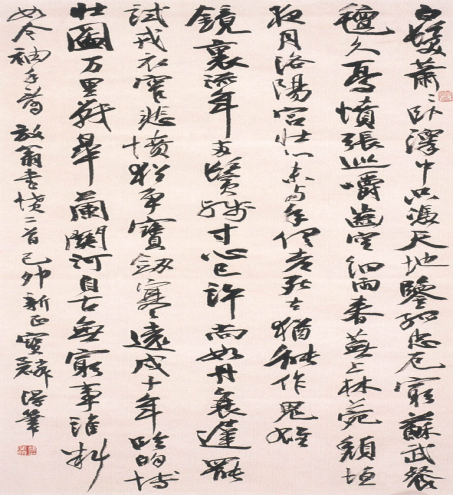 白髮蕭〻臥澤中只憑天地鑒孤忠厄窮蘇武餐
氈久憂憤張巡嚼齒空細雨春蕪上林苑頹垣
夜月洛陽宮壯心未與年俱老死去猶能作鬼雄
鏡裏流年兩鬢殘寸心已許尚如丹衰遲罷
試戎衣窄悲憤猶爭寶劍寒遠戍十年臨的博
壯圖万里戰皋蘭關河自古無窮事誰料
如今袖手看 放翁書憤二首己卯新正寶麟筆